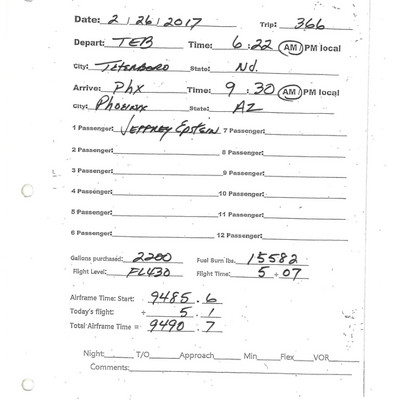 Date: 2 / 26 / 2017 Trip: 366
Depart: TEB Time: 6:22 AM PM local
City: TETERBORO State: Nd.
Arrive: PHX Time: 9:30 AM PM local
City: PHOENIX State: AZ
1 Passenger: JEFFREY EPSTEIN 7 Passenger:
2 Passenger: 8 Passenger:
3 Passenger: 9 Passenger:
4 Passenger: 10 Passenger:
5 Passenger: 11 Passenger:
6 Passenger: 12 Passenger:
Gallons purchased: 2200 Fuel Burn lbs. 15582
Flight Level: FL430 Flight Time: 5 + 07
Airframe Time: Start: 9485 . 6
Today's flight: + 5 . 1
Total Airframe Time = 9490 . 7
Night: T/O Approach Min Flex VOR
Comments: